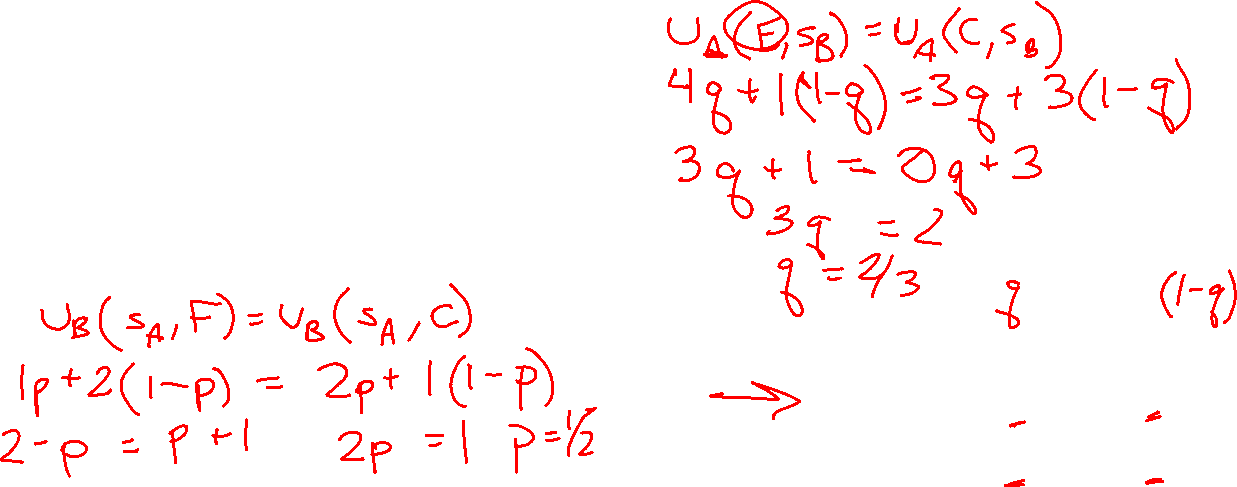 U_A(F, s_B) = U_A(C, s_B)
4q + 1(1-q) = 3q + 3(1-q)
3q + 1 = 0q + 3
3q = 2
q = 2/3
q (1-q)
U_B(s_A, F) = U_B(s_A, C)
1p + 2(1-p) = 2p + 1(1-p)
2-p = p+1 2p = 1 p = 1/2